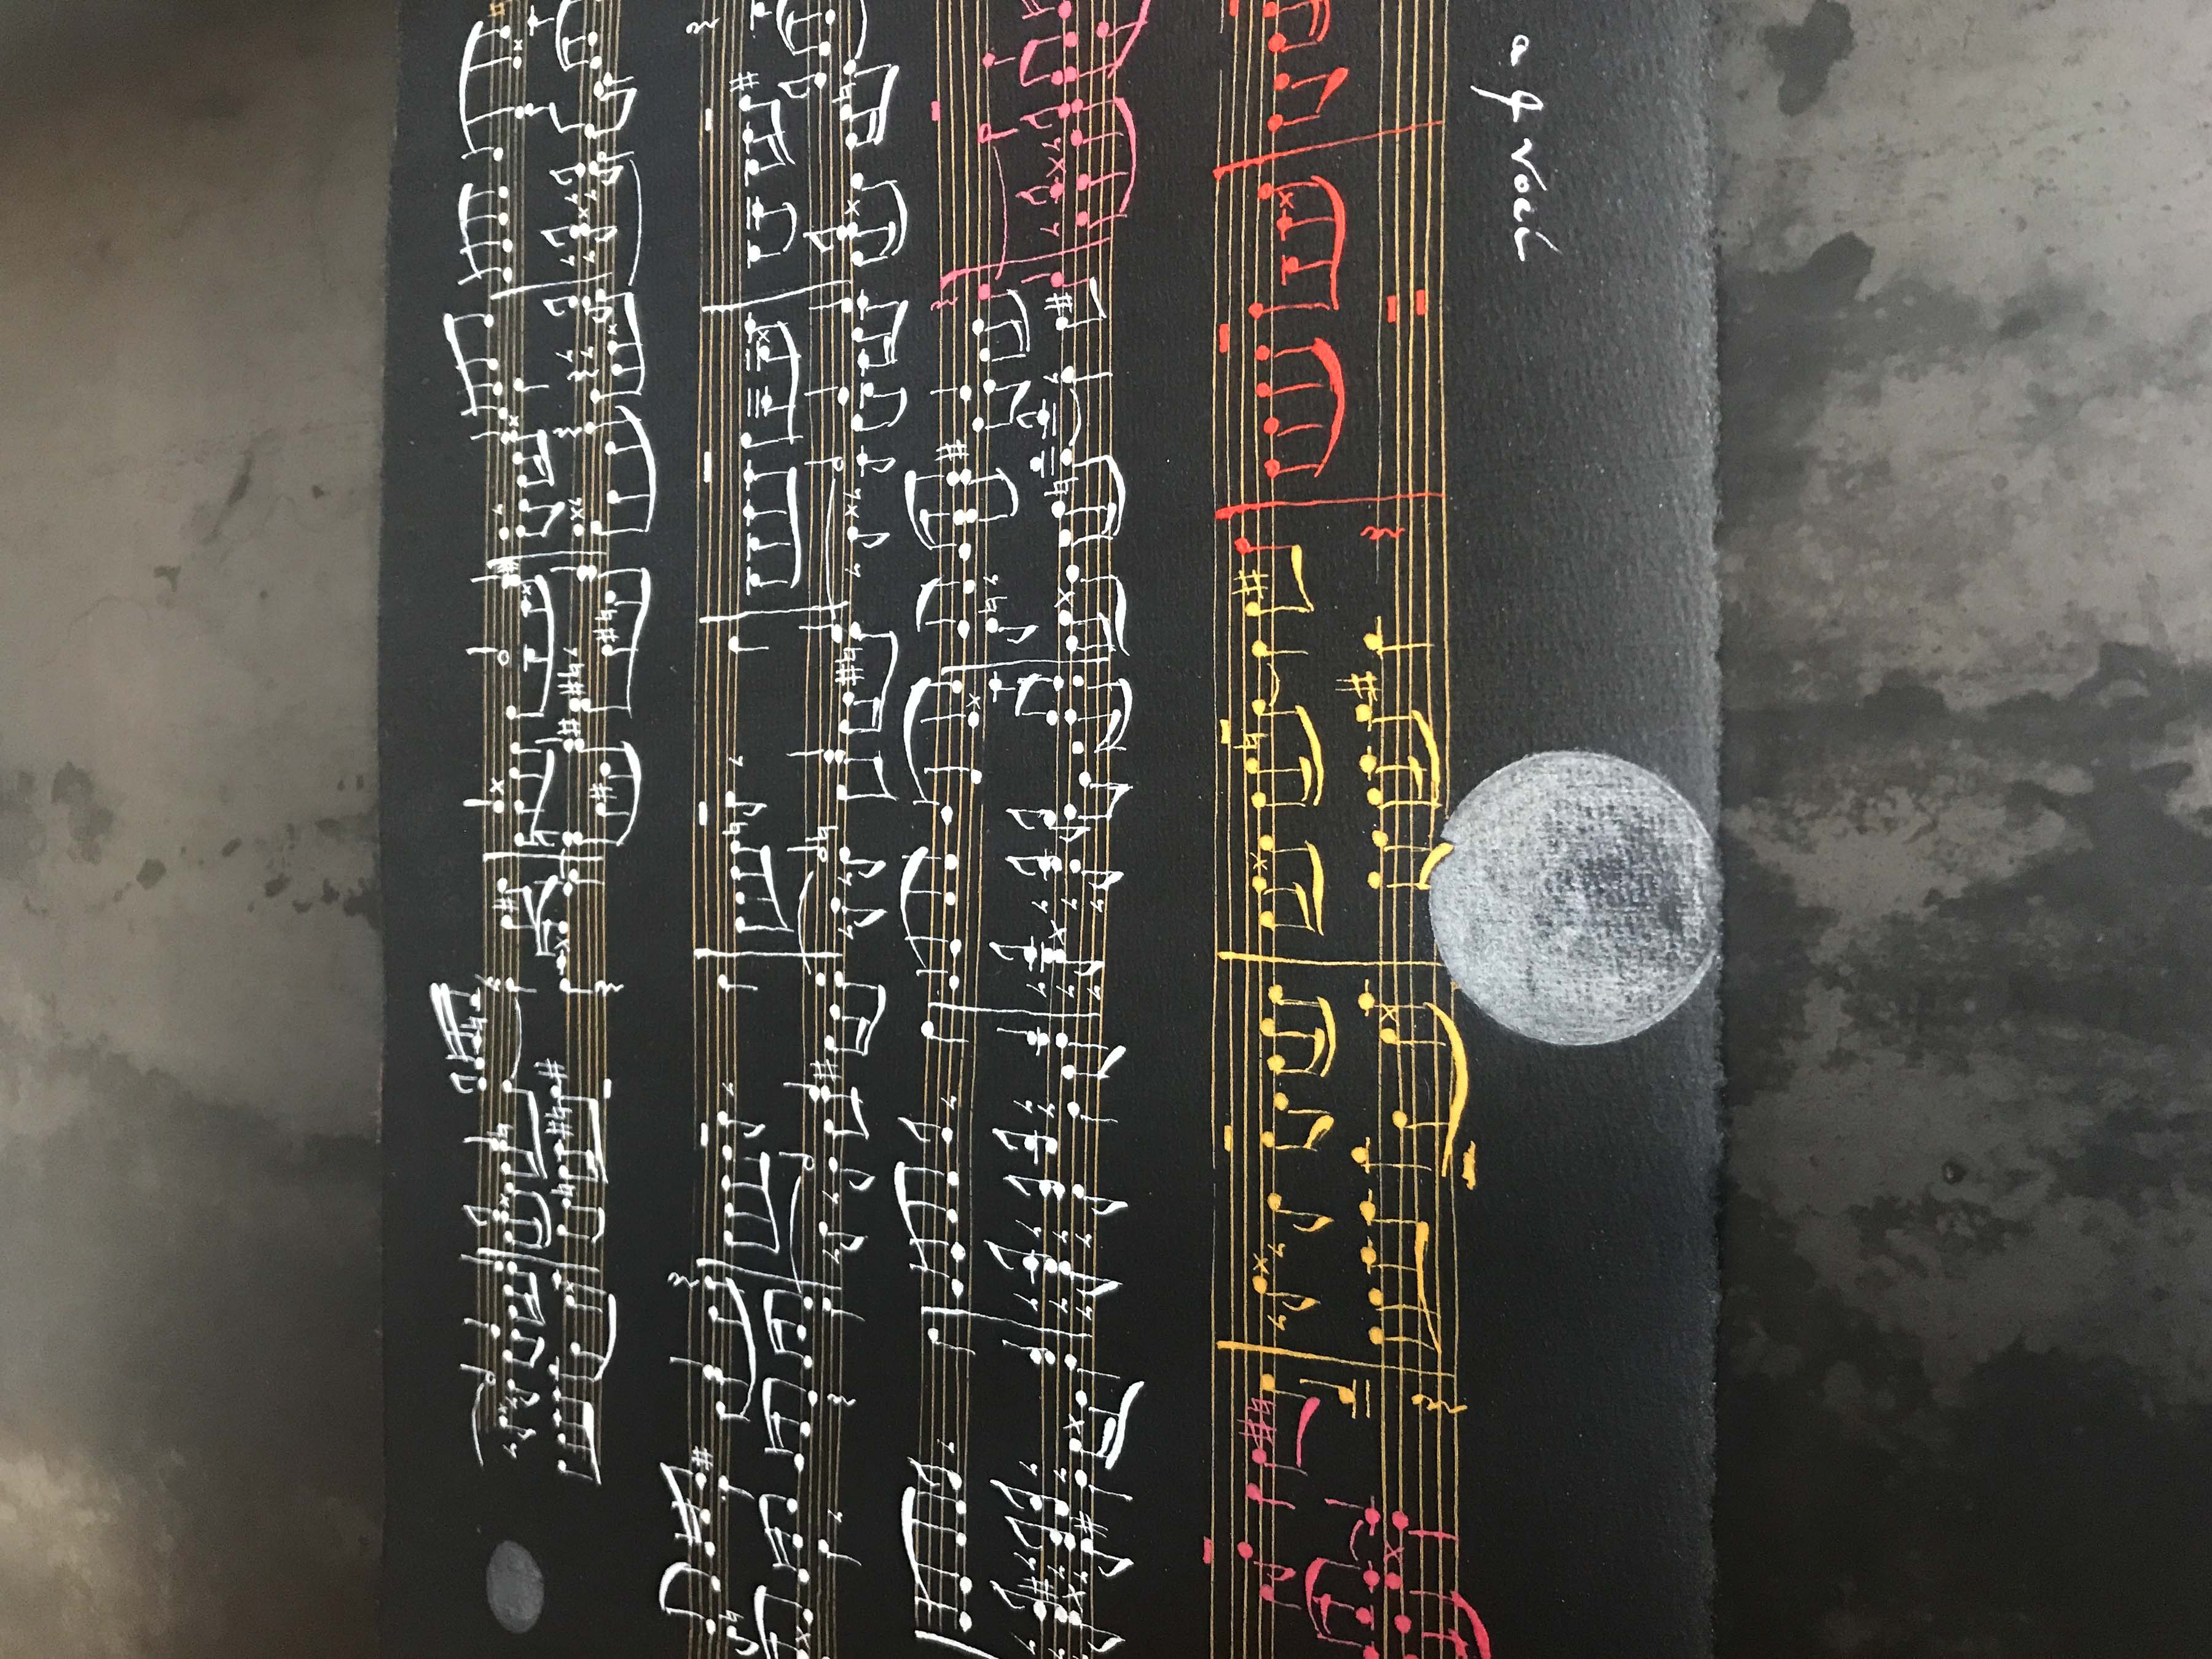 a 4 voci